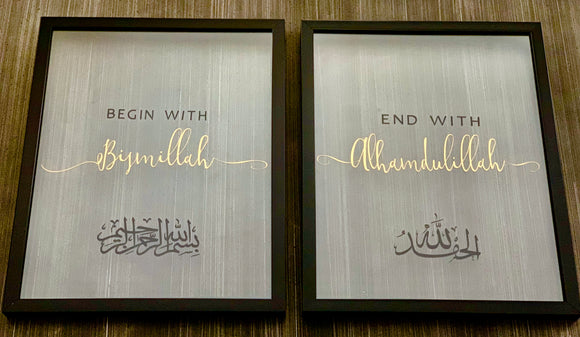 BEGIN WITH
Bismillah
بسم الله الرحمن الرحيم
END WITH
Alhamdulillah
الحمد لله